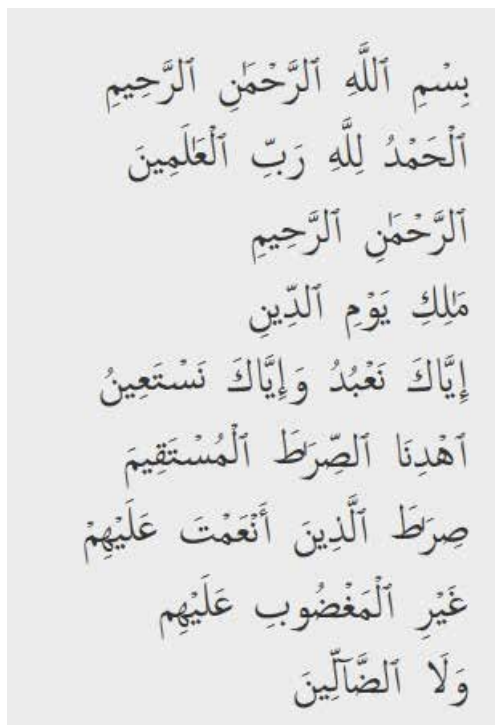 بِسْمِ ٱللَّهِ ٱلرَّحْمَٰنِ ٱلرَّحِيمِ
ٱلْحَمْدُ لِلَّهِ رَبِّ ٱلْعَٰلَمِينَ
ٱلرَّحْمَٰنِ ٱلرَّحِيمِ
مَٰلِكِ يَوْمِ ٱلدِّينِ
إِيَّاكَ نَعْبُدُ وَإِيَّاكَ نَسْتَعِينُ
ٱهْدِنَا ٱلصِّرَٰطَ ٱلْمُسْتَقِيمَ
صِرَٰطَ ٱلَّذِينَ أَنْعَمْتَ عَلَيْهِمْ
غَيْرِ ٱلْمَغْضُوبِ عَلَيْهِم
وَلَا ٱلضَّآلِّينَ